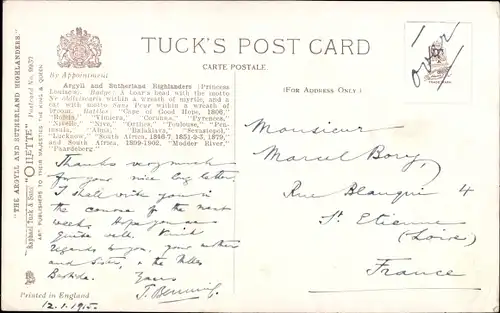 TUCK'S POST CARD
CARTE POSTALE.
By Appointment
(FOR ADDRESS ONLY.)
over
Argyll and Sutherland Highlanders (Princess
Louise's). Badge: A Boar's head with the motto
Ne Obliviscaris within a wreath of myrtle, and a
cat with motto Sans Peur within a wreath of
broom. Battles: "Cape of Good Hope, 1806,"
"Rolica," "Vimiera," "Corunna," "Pyrenees,"
"Nivelle," "Nive," "Orthes," "Toulouse," "Pen-
insula," "Alma," "Balaklava," "Sevastopol,"
"Lucknow," "South Africa, 1846-7, 1851-2-3, 1879,
and South Africa, 1899-1902, "Modder River,"
"Paardeberg."
Thanks very much
for your nice long letter.
I shall write you in
the course of the next
week. Hope you are
quite well. Kind
regards to you, your mother
and sister, & the Milles
Yours
Monsieur
Marcel Bory,
Rue Beauquis 4
St Etienne
(Loire)
France
"THE ARGYLL AND SUTHERLAND HIGHLANDERS."
Raphael Tuck & Sons' "OILETTE" Postcard No. 9937
ART PUBLISHERS TO THEIR MAJESTIES THE KING & QUEEN.
Printed in England
12.1.1915.